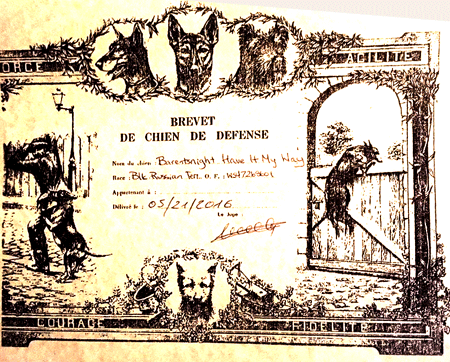 FORCE
AGILITE
BREVET
DE CHIEN DE DEFENSE
Nom du chien Barentsnight Have It My Way
Race Blk Russian Terr. o. F.
Appartenant à :
Délivré le : 05/21/2016
Le Juge :
COURAGE
FIDELITE